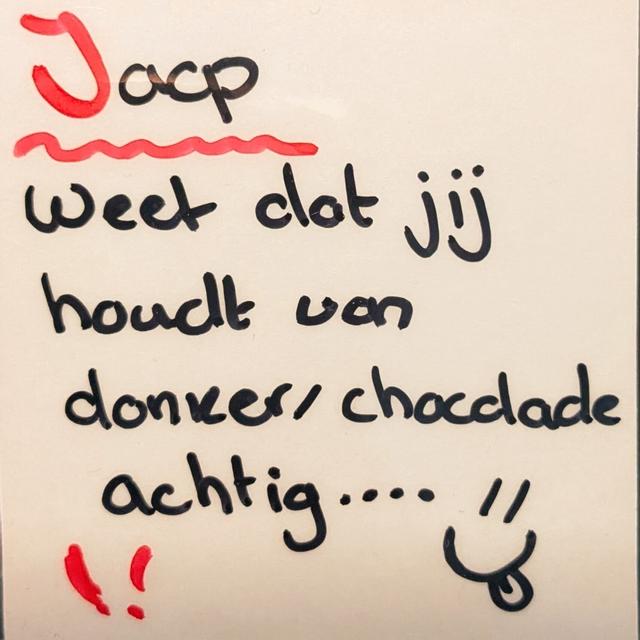 Jaap
weet dat jij
houdt van
donker/chocolade
achtig....
!!